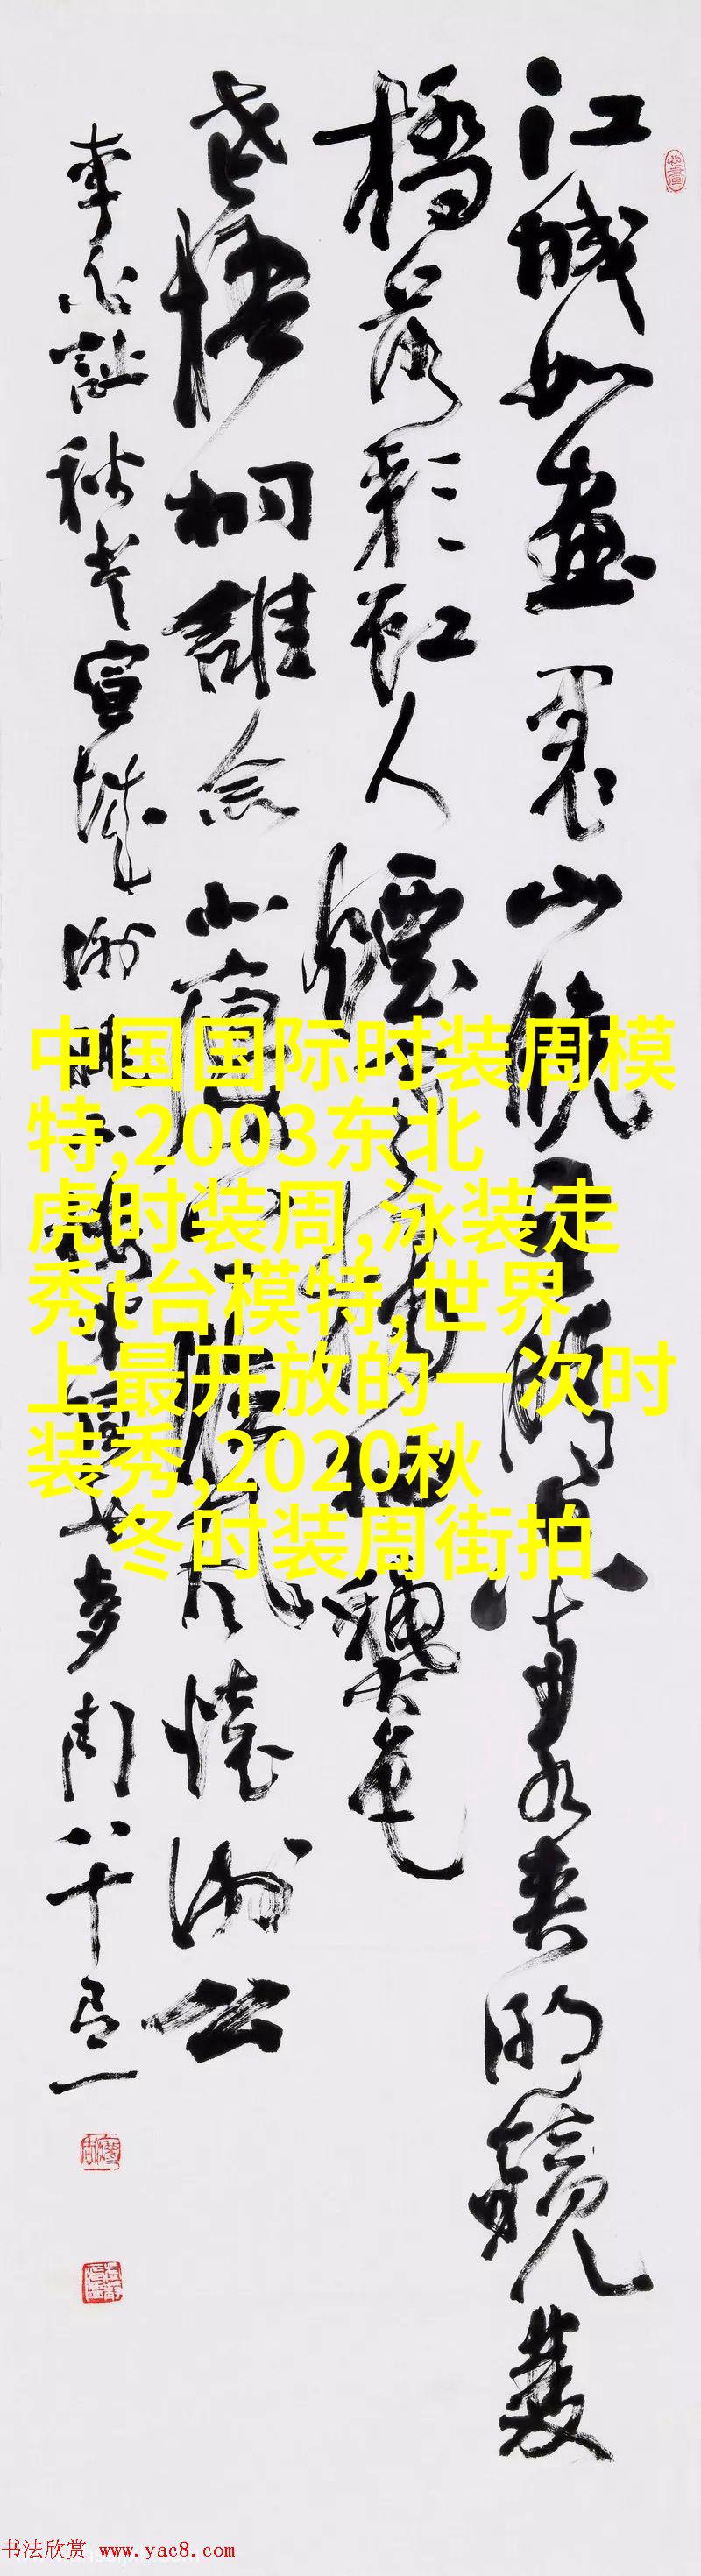 江城如畫裏山曉望晴空兩水夾明鏡雙
橋落彩虹人煙寒橘柚秋色
老梧桐誰念北樓上臨風懷謝公
李白詩秋登宣城謝朓北樓 八十有一
中国国际时装周模
特,2003东北
虎时装周,泳装走
秀t台模特,世界
上最开放的一次时
装秀,2020秋
冬时装周街拍
书法欣赏 www.yac8.com